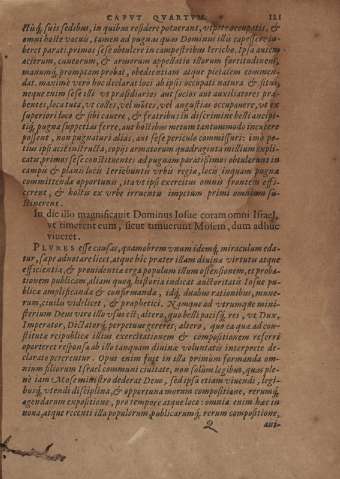 CAPVT QVARTVM. 121
suis sedibus, in quibus residere poterant, utpote occupatis, &
omni hoste vacuis, tamen ad pugnas quas Dominus illis capessere iu-
beret parati primos sese obtulere in campestribus Iericho. Ipsa autem
acierum, cuneorum, & armorum appellatio illorum fortitudinem,
manumq́; promptam probat, obedientiam atque pietatem commen-
dat. maximè vero hoc declarat loci ab ipsis occupati natura & situs,
neque enim sese illi vt praesidiarios aut socios aut auxiliatores prae-
bentes, loca tuta, vt colles, vel montes, vel angustias occupauere, vt ex
superiori loco & sibi cauere, & fratribus in discrimine belli ancipi-
tisq́; pugnae suppetias ferre, aut hostibus metum tantummodo incutere
possent, non pugnaturi alias, aut sese periculo commissuri: imò po-
tius ipsi acie instructa, copijs armatorum quadraginta millium expli-
catis, primos sese constituentes ad pugnam paratissimos obtulerunt in
campis & planis locis Ierichuntis vrbis regiae, loco inquam pugnae
committendae opportunis, ita vt ipsi exercitus omnis frontem effi-
cerent, & hostis ex vrbe irruentis impetum primi omnium su-
stinerent.
In die illo magnificauit Dominus Iosue coram omni Israel,
vt timerent eum, sicut timuerunt Mosem, dum adhuc
viueret.
PLVRES esse causas, quamobrem vnum idemq́; miraculum eda-
tur, saepe adnotare licet, atque hic praeter illam diuinae virtutis atque
efficientiae, & prouidentiae erga populum illum ostensionem, et proba-
tionem publicam, aliam quoq; historia indicat auctoritatis Iosue pu-
blicè amplificandae & confirmandae, idq́; duabus rationibus, mune-
rum, ciuilis videlicet, & prophetici. Namque ad vtrumque mini-
sterium Deus viro illo vsus est, altero, quo belli pacisq́; res, vt Dux,
Imperator, Dictatorq́; perpetuus gereret, altero, quo ea quae ad con-
stituta reipublicae illius exercitationem & compositionem referri
oporteret responsa ab illo tanquam diuinae voluntatis interprete de-
clarata peterentur. Opus enim fuit in illa primùm formanda om-
nium filiorum Israel communi ciuitate, non solùm legibus, quas ple-
nè iam Mose ministro dederat Deus, sed ipsa etiam viuendi, legi-
busq́; vtendi disciplina, & opportuna morum compositione, rerumq́;
agendarum expositione, pro tempore atque loco: omnia enim haec in
noua, atque recenti illa popularum, publicarumq́; rerum compositione,
Q aut-